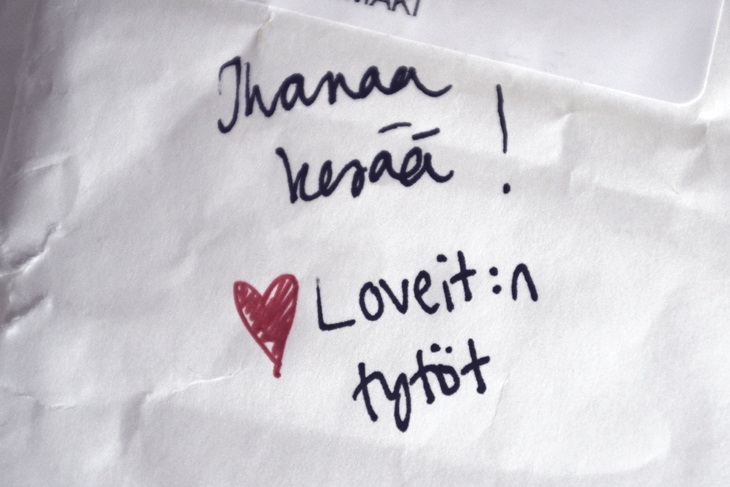 Ihanaa
kesää!
Loveit:n
tytöt